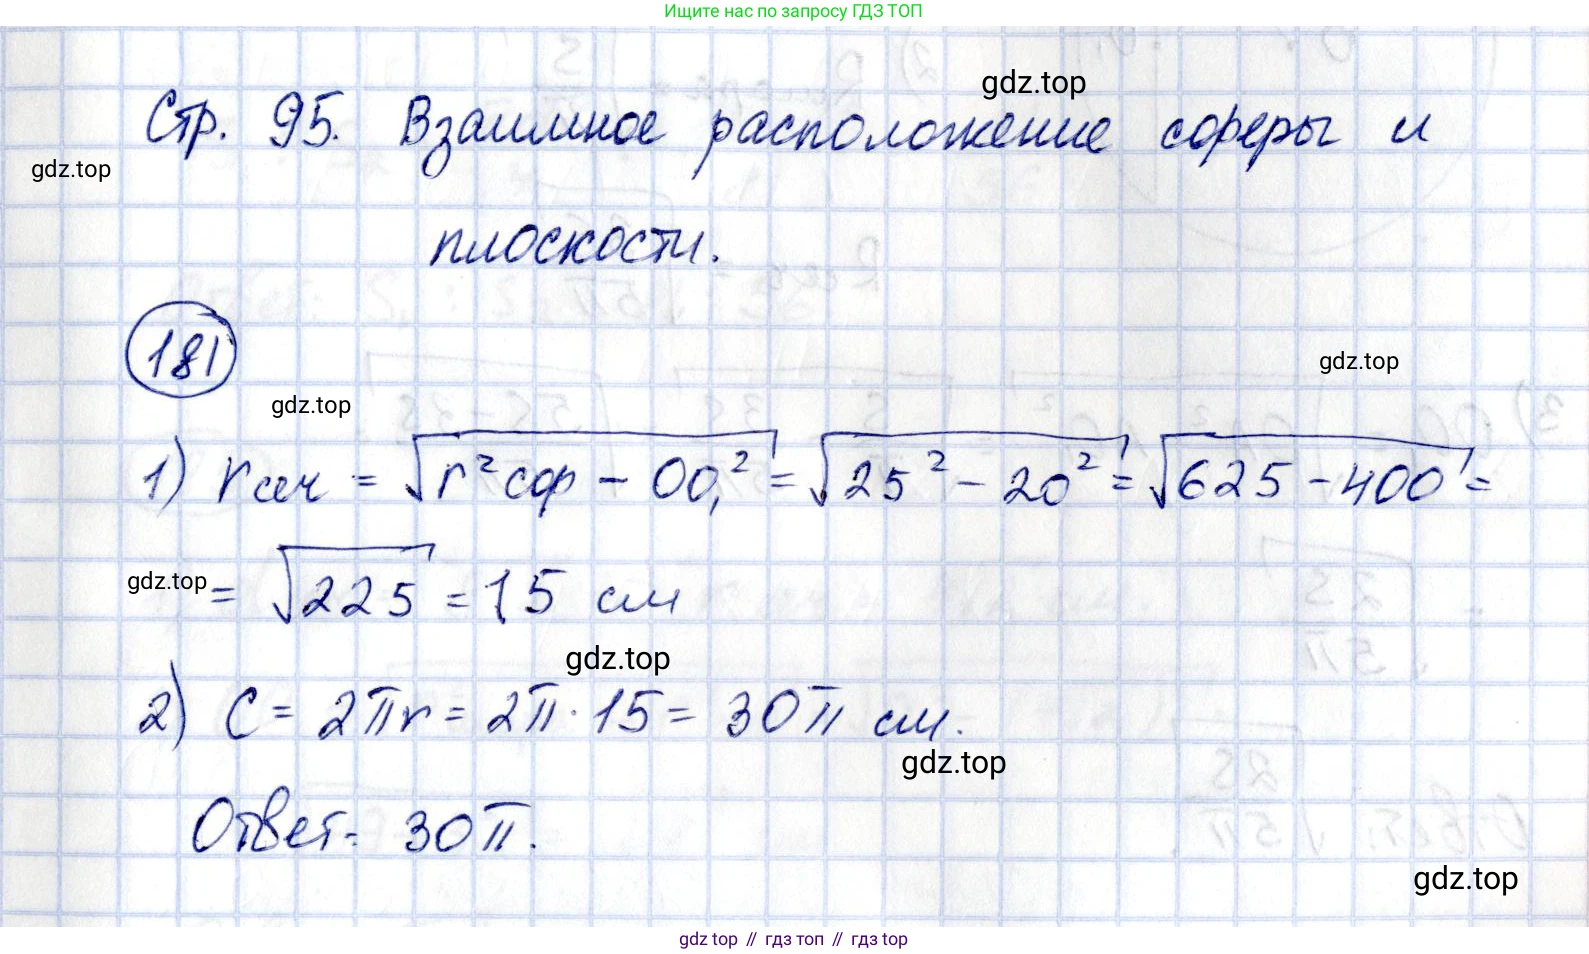 Ищите нас по запросу ГДЗ ТОП
gdz.top
Стр. 95. Взаимное расположение сферы и
gdz.top
плоскости.
181
gdz.top
gdz.top
1) rсеч = √(r²сф − OO₁²) = √(25² − 20²) = √(625 − 400) =
gdz.top
= √225 = 15 см
gdz.top
2) C = 2πr = 2π · 15 = 30π см.
gdz.top
Ответ: 30π.
gdz.top
gdz.top // гдз топ // гдз top